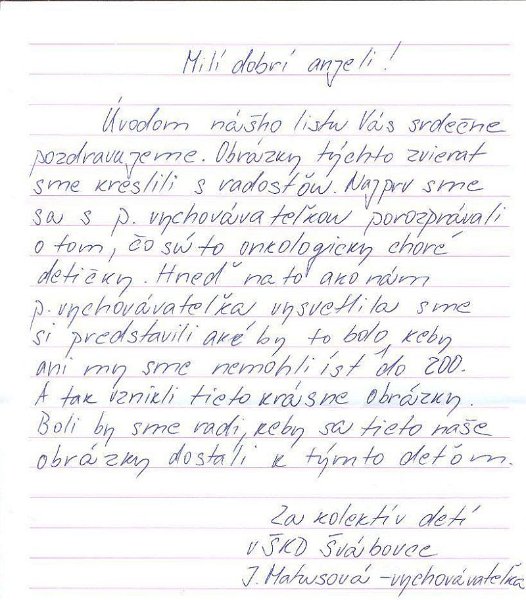 Milí dobrí anjeli!
Úvodom nášho listu Vás srdečne
pozdravujeme. Obrázky týchto zvierat
sme kreslili s radosťou. Najprv sme
sa s p. vychovávateľkou porozprávali
o tom, čo sú to onkologicky choré
detičky. Hneď na to ako nám
p. vychovávateľka vysvetlila sme
si predstavili aké by to bolo, keby
ani my sme nemohli ísť do ZOO.
A tak vznikli tieto krásne obrázky.
Boli by sme radi, keby sa tieto naše
obrázky dostali k týmto deťom.
Za kolektív detí
v ŠKD Švábovce
J. Matusová - vychovávateľka